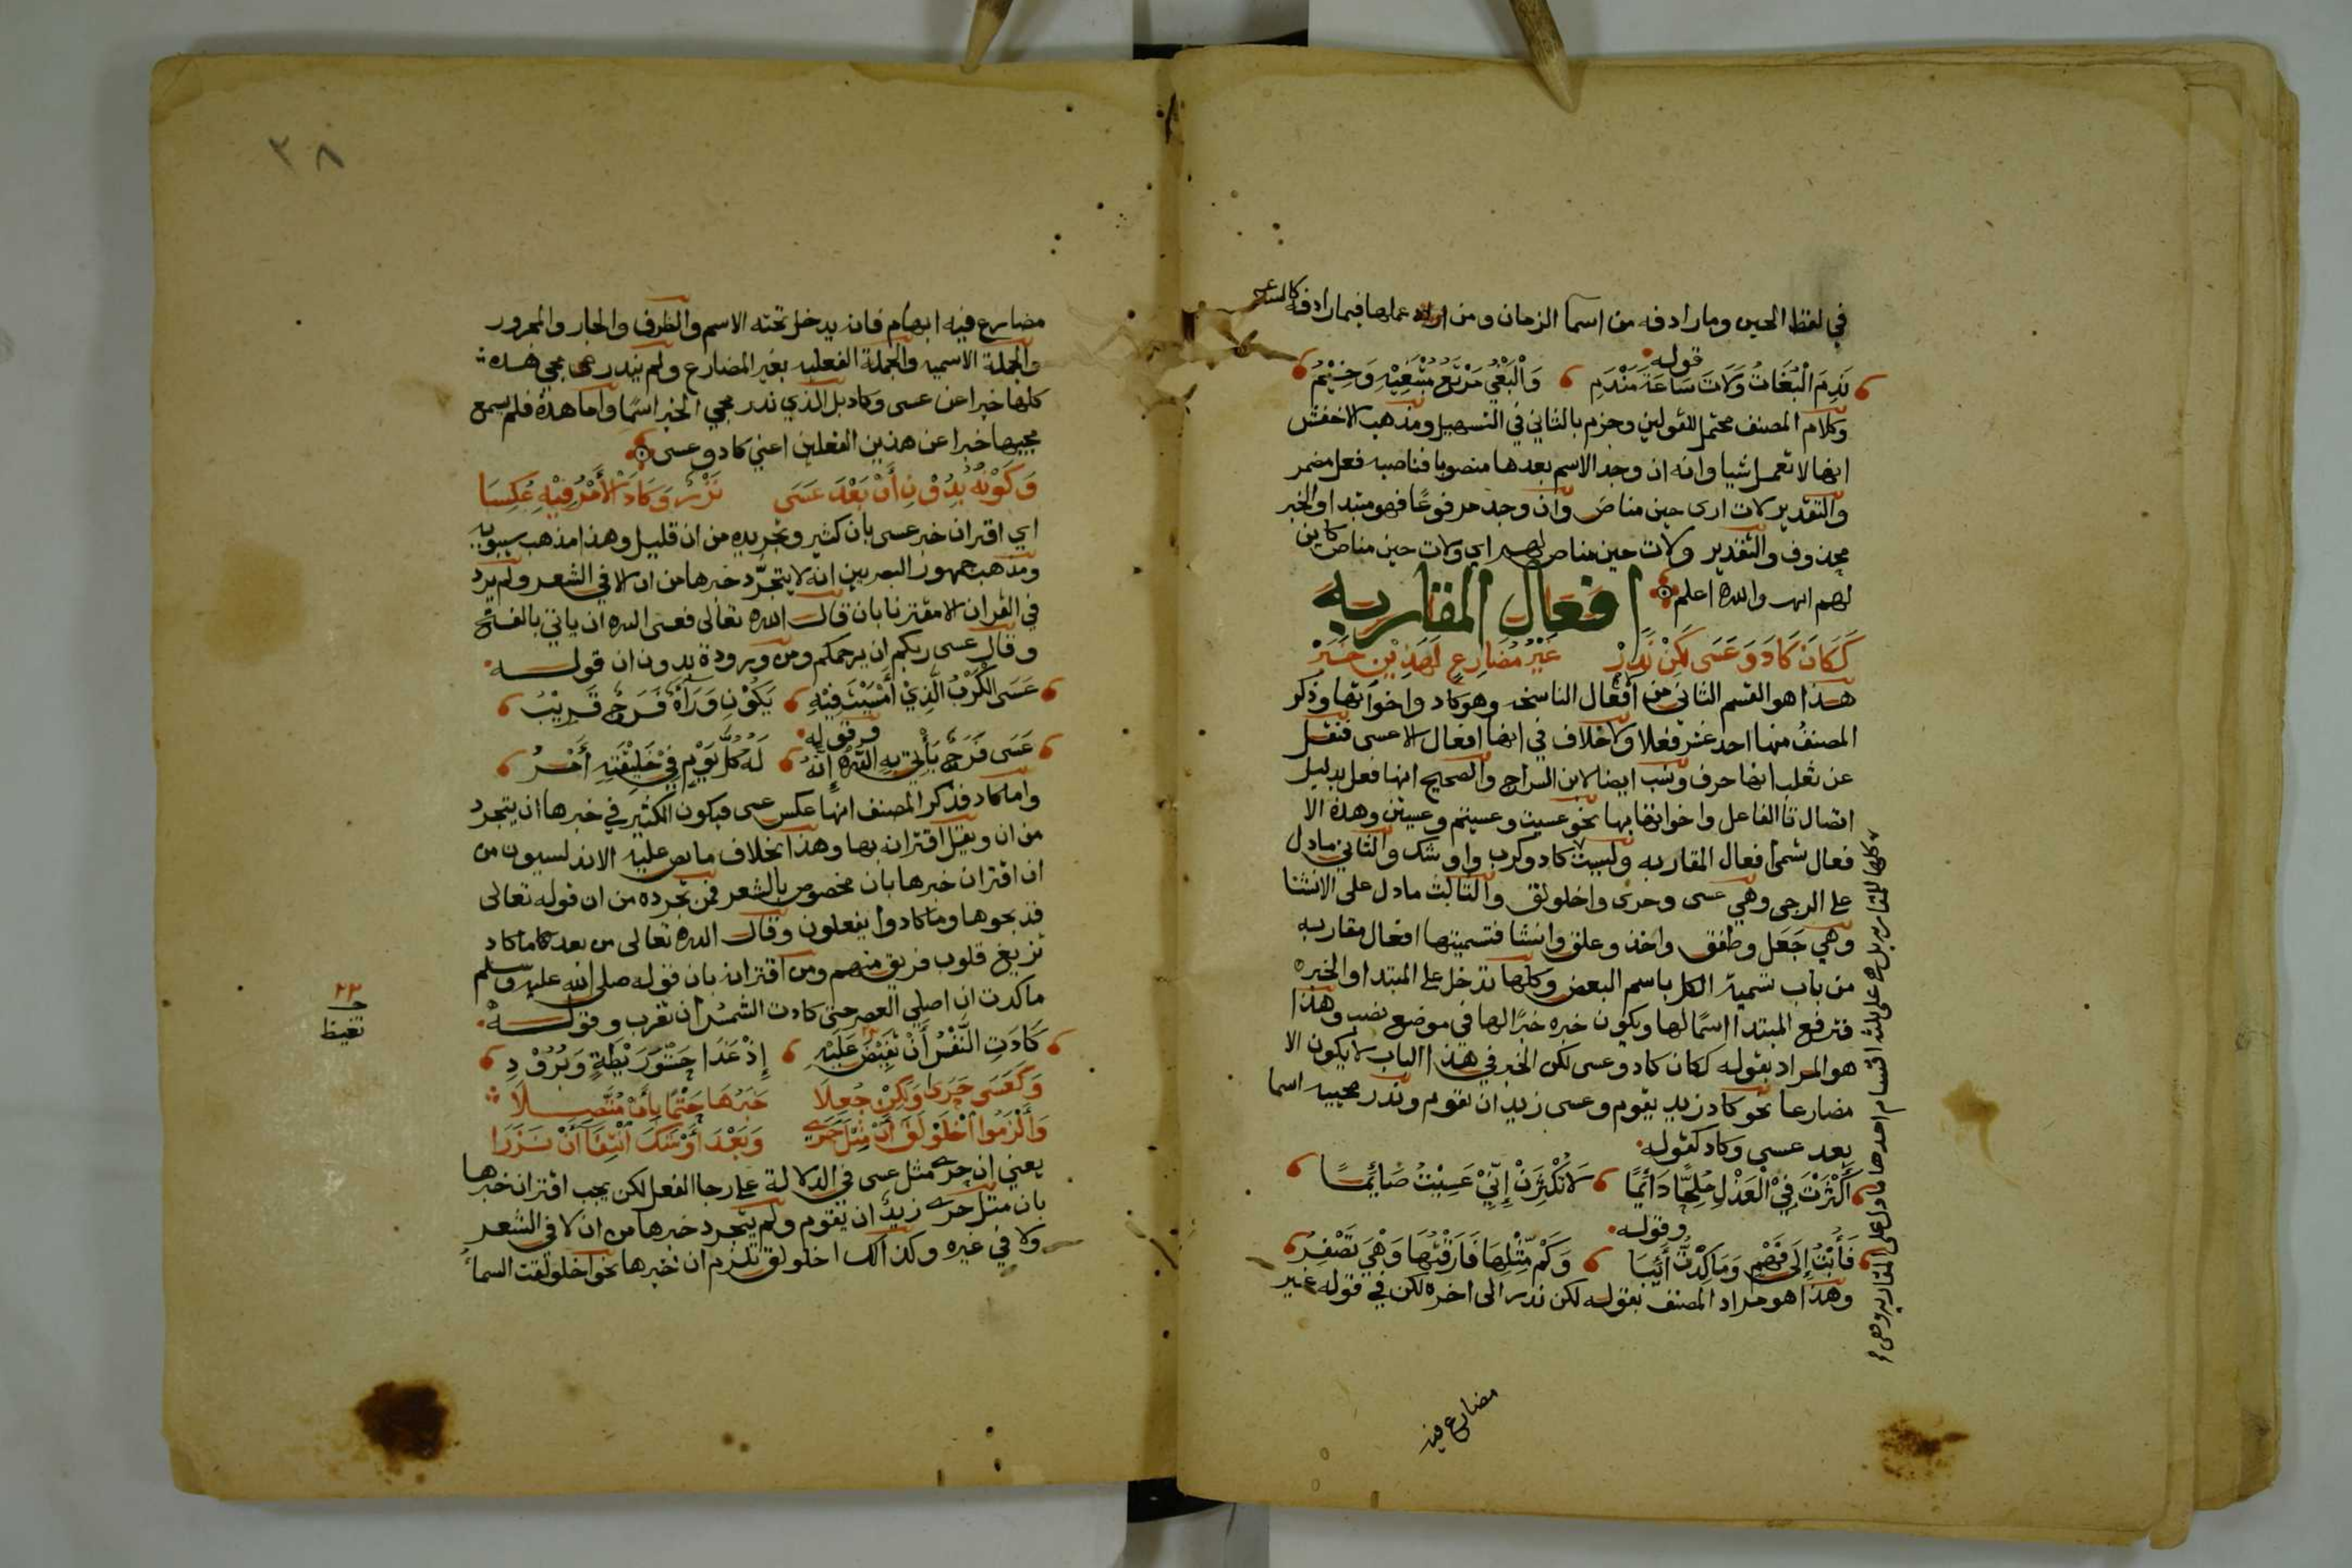 في لفظ الحين وما رادفه من اسما الزمان ومن عملها فيما رادفه
قوله
نَدِمَ الْبُغَاتُ وَلَاتَ سَاعَةَ مَنْدَمِ وَالْبَغْيُ مَرْتَعُ مُبْتَغِيْهِ وَخِيْمُ
وكلام المصنف محتمل للقولين وجزم بالثاني في التسهيل ومذهب الاخفش
انها لا تعمل شيا وانه ان وجد الاسم بعدها منصوبا فناصبه فعل مضمر
والتقدير لات ارى حين مناص وان وجد مرفوعًا فهو مبتدا والخبر
محذوف والتقدير ولات حين مناص لهم اي ولات حين مناص كاين
لهم انتهى والله اعلم
افعال المقاربه
كَكَانَ كَادَ وَعَسَى لكِنْ نَدَرْ غَيْرُ مُضَارِعٍ لِهَذَيْنِ خَبَرْ
هذا هو القسم الثاني من افعال الناسخه وهو كاد واخواتها وذكر
المصنفُ منها احد عشر فعلا ولا خلاف في انها افعال الا عسى فنقل
عن ثعلب انها حرف ونسب ايضا لابن السراج والصحيح انها فعل بدليل
اتصال تا الفاعل واخواتها بها نحو عسيت وعسيتم وعسيتن وهذه الا
فعال تسمى افعال المقاربه وليست كاد وكرب واوشك والثاني ما دل
على الرجى وهي عسى وحرى واخلولق والثالث ما دل على الانشا
وهي جَعَل وطفق واخذ وعلق وانشا فتسميتها افعال مقاربه
من باب تسمية الكل باسم البعض وكلها تدخل على المبتدا والخبر
فترفع المبتدا اسمًا لها ويكون خبره خبرًا لها في موضع نصب وهذا
هو المراد بقوله ككان كاد وعسى لكن الخبر في هذا الباب لا يكون الا
مضارعا نحو كاد زيد يقوم وعسى زيد ان يقوم وندر مجييه اسما
بعد عسى وكاد كقوله
أَكْثَرْتَ فِيْ الْعَذْلِ مُلِحًّا دَائِمًا لَا تُكْثِرَنْ إِنِّيْ عَسِيْتُ صَائِمًا
وقوله
فَأُبْتُ إِلَى فَهْمٍ وَمَا كِدْتُ آئِبًا وَكَمْ مِّثْلِهَا فَارَقْتُهَا وَهْيَ تَصْفِرُ
وهذا هو مراد المصنف بقوله لكن ندر الى اخره لكن في قوله غير
كلها للمقاربه بل هي على ثلثه اقسام احدها ما دل على المقاربه وهي
مضارع فيه
٣٨
مضارع فيه ابهام فانه يدخل تحته الاسم والظرف والجار والمجرور
والجملة الاسميه والجملة الفعليه بغير المضارع ولم يندر مجي هذه
كلها خبرا عن عسى وكاد بل الذي ندر مجي الخبر اسمًا واما هذه فلم يسمع
مجييها خبرا عن هذين الفعلين اعني كاد وعسى
وَكَوْنُهُ بِدُوْنِ أَنْ بَعْدَ عَسَى نَزْرٌ وَكَادَ الْأَمْرُ فِيْهِ عُكِسَا
اي اقتران خبر عسى بان كثير وتجريده من ان قليل وهذا مذهب سيبويه
ومذهب جمهور البصريين انه لا يتجرّد خبرها من ان الا في الشعر ولم يرد
في القران الا مقترنا بان قال الله تعالى فعسى الله ان ياتي بالفتح
وقال عسى ربكم ان يرحمكم ومن وروده بدون ان قوله
عَسَى الْكَرْبُ الَّذِيْ أَمْسَيْتَ فِيْهِ يَكُوْنُ وَرَآهُ فَرَجٌ قَرِيْبُ
وقوله
عَسَى فَرَجٌ يَأْتِيْ بِهِ اللهُ إِنَّهُ لَهُ كُلَّ يَوْمٍ فِيْ خَلِيْقَتِهِ أَمْرُ
واما كاد فذكر المصنف انها عكس عسى فيكون الكثير في خبرها ان يتجرد
من ان ويقل اقترانه بها وهذا بخلاف ما نص عليه الاندلسيون من
ان اقتران خبرها بان مخصوص بالشعر فمن تجرده من ان قوله تعالى
فذبحوها وما كادوا يفعلون وقال الله تعالى من بعد ما كاد
تزيغ قلوب فريق منهم ومن اقترانه بان قوله صلى الله عليه وسلم
ما كدت ان اصلي العصر حتى كادت الشمس ان تغرب وقوله
كَادَتِ النَّفْسُ أَنْ تَفِيْضَ عَلَيْهِ إِذْ غَدَا حَشْوَ رَيْطَةٍ وَبُرُوْدِ
وَكَعَسَى حَرَى وَلَكِنْ جُعِلَا خَبَرُهَا حَتْمًا بِأَنْ مُتَّصِلَا
وَأَلْزَمُوا اخْلَوْلَقَ أَنْ مِثْلَ حَرَى وَبَعْدَ أَوْشَكَ انْتِفَا أَنْ نَزَرَا
يعني ان حرى مثل عسى في الدلالة على رجا الفعل لكن يجب اقتران خبرها
بان مثل حرى زيدٌ ان يقوم ولم يتجرد خبرها من ان لا في الشعر
ولا في غيره وكذالك اخلولق تلزم ان خبرها نحو اخلولقت السماءُ
٢٢
تغيظ